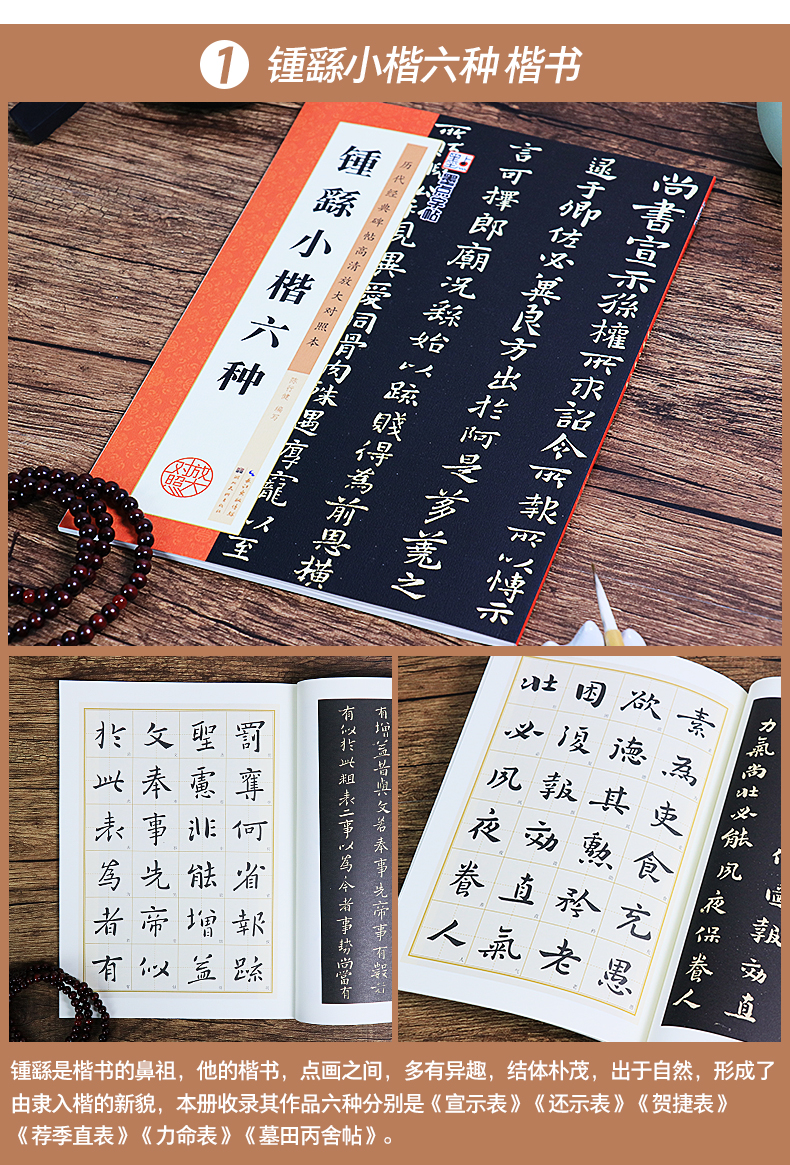 1 锺繇小楷六种 楷书
锺繇小楷六种
历代经典碑帖高清放大对照本
陈行健 编写
放大对照
墨点字帖
尚書宣示孫權所求詔令所報所以博示
逮于卿佐必冀良方出於阿是芻蕘之
言可擇郎廟況繇始以疏賤得為前恩橫
見異愛同骨肉殊遇厚寵以至
罰奪何省報疏
聖慮非能增益
文奉事先帝似
於此表為者有
有增益昔與文若奉事先帝事有數
有似於此粗表二事以為今者事勢尚當有
素為吏食充愚
欲德其勲矜老
困復報効直氣
壯必夙夜養人
報効直
力氣尚壯必能夙夜保養人
锺繇是楷书的鼻祖，他的楷书，点画之间，多有异趣，结体朴茂，出于自然，形成了
由隶入楷的新貌，本册收录其作品六种分别是《宣示表》《还示表》《贺捷表》
《荐季直表》《力命表》《墓田丙舍帖》。